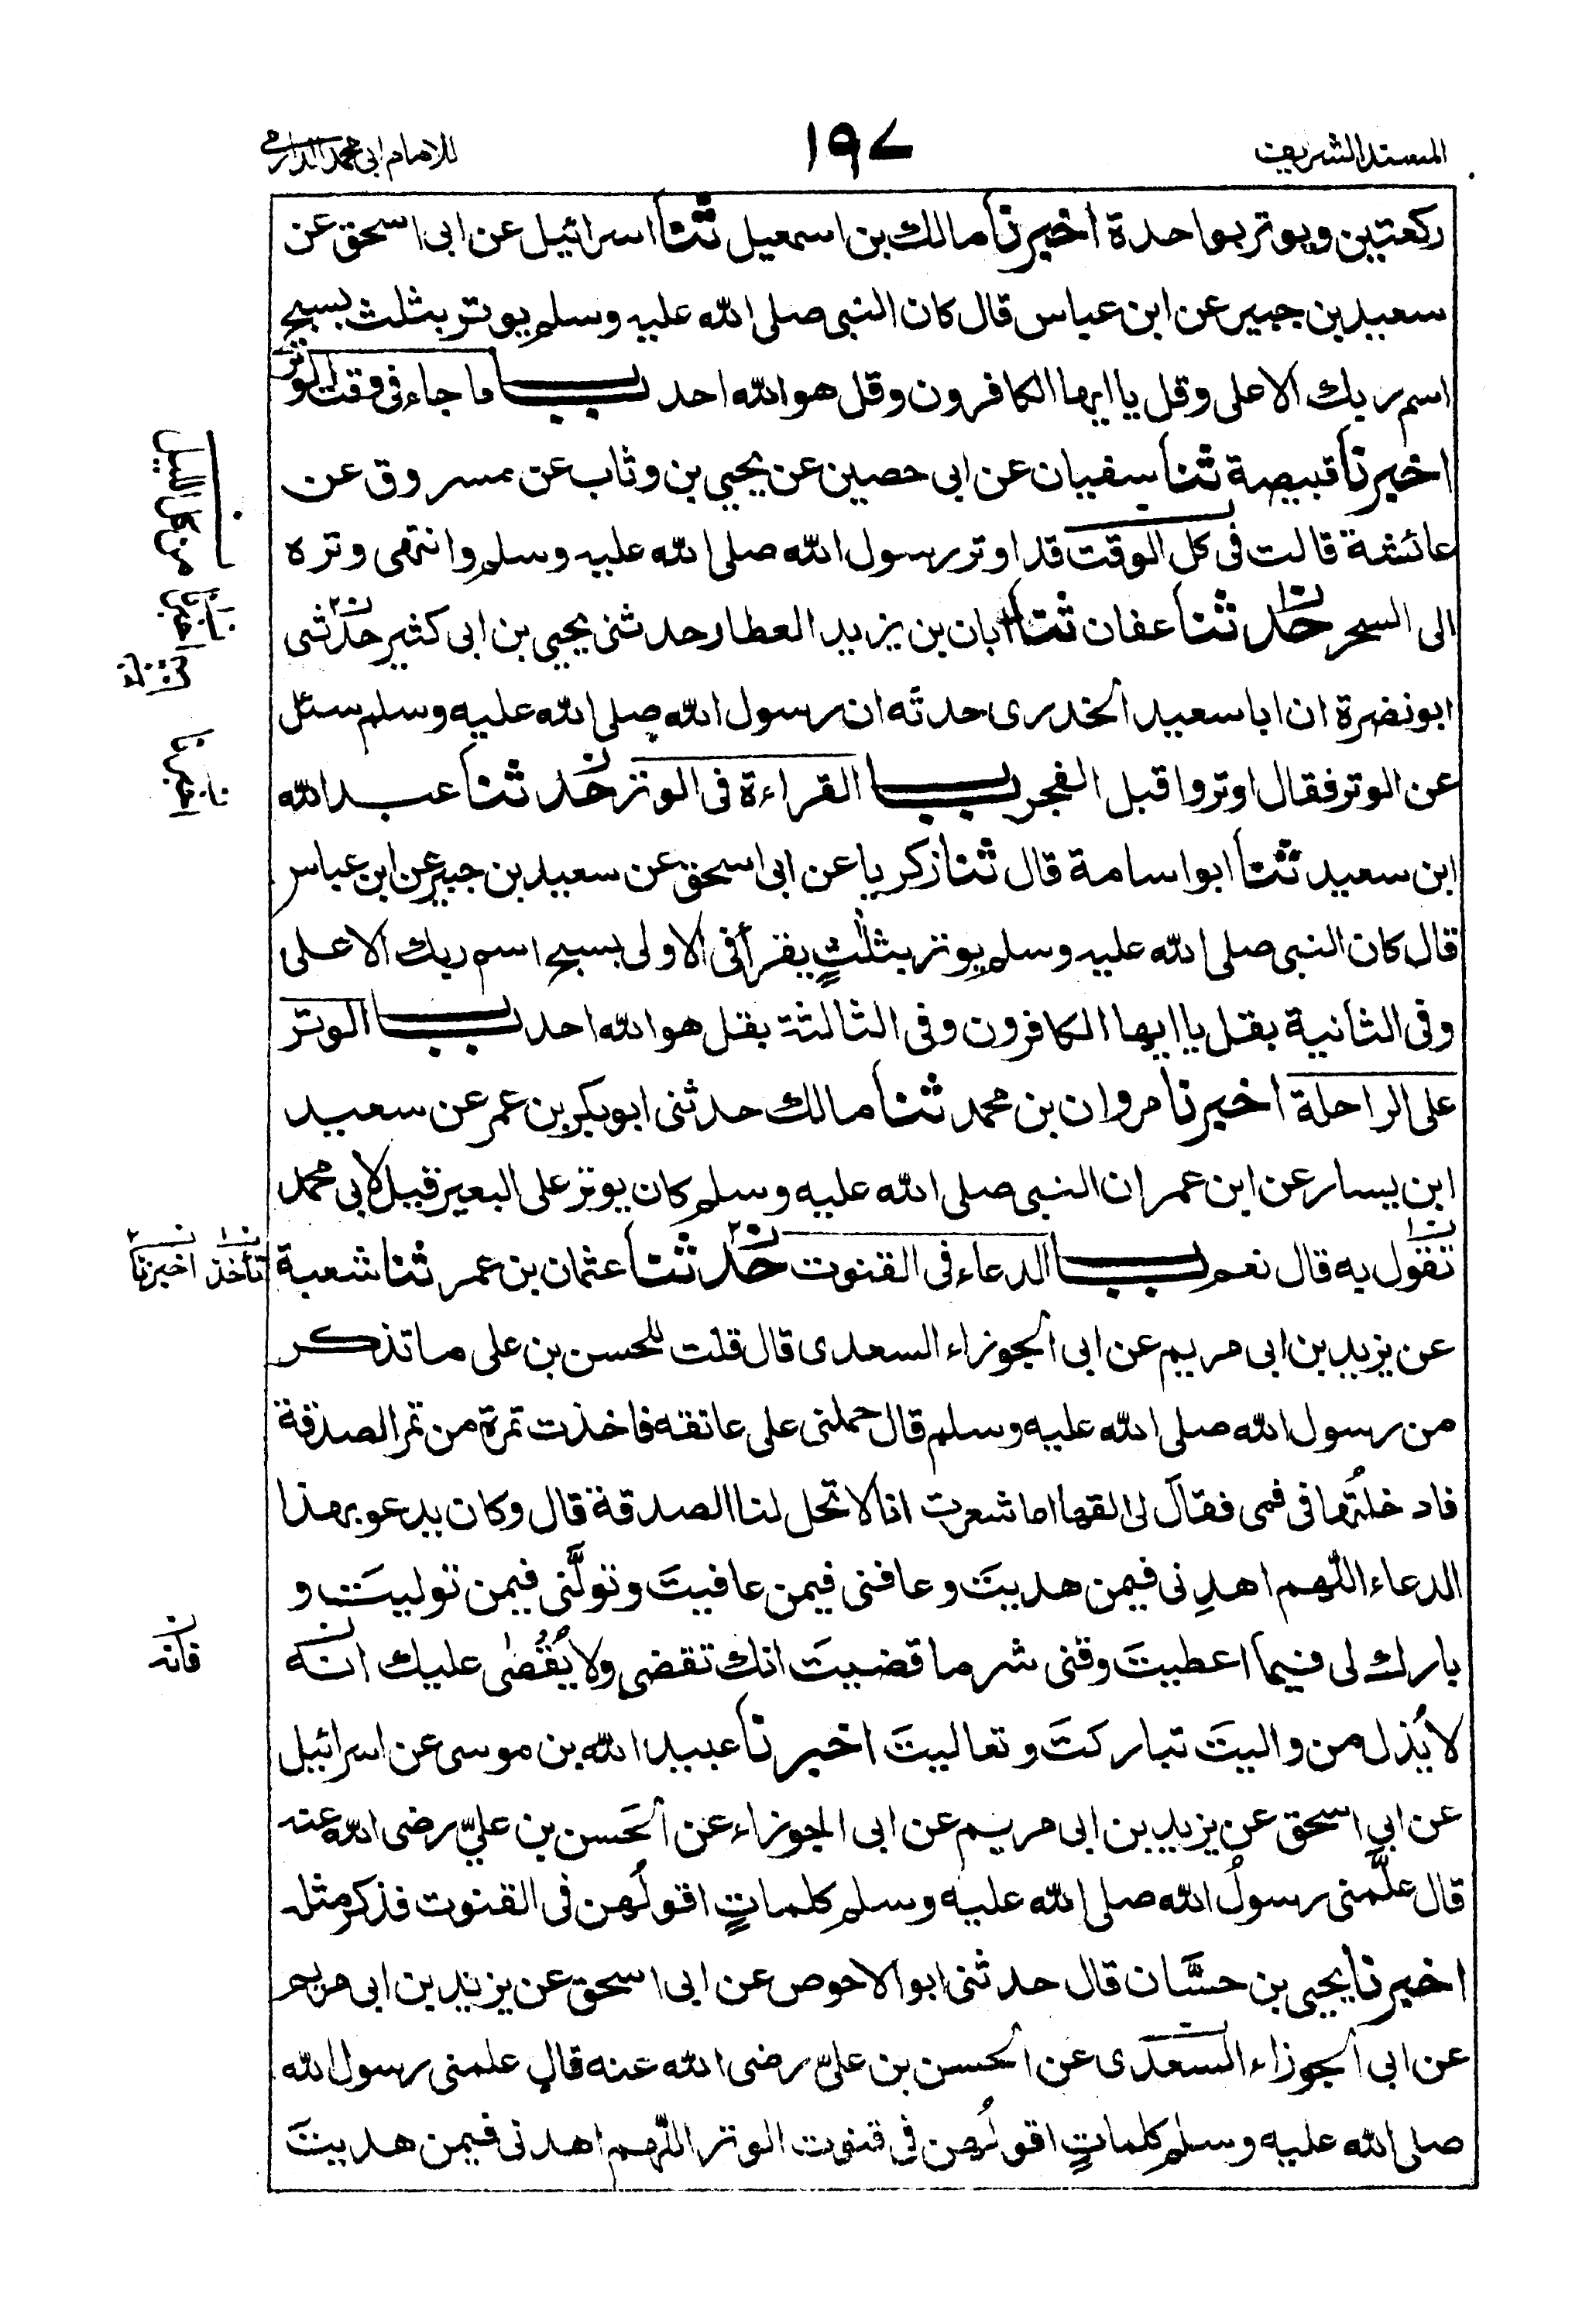 المسند الشريف ١٩٧ للامام ابى محمد الدارمى
ركعتين ويوتر بواحدة اخبرنا مالك بن اسمعيل ثنا اسرائيل عن ابى اسحق عن
سعيد بن جبير عن ابن عباس قال كان النبى صلى الله عليه وسلم يوتر بثلث بسبح
اسم ربك الاعلى وقل يا ايها الكافرون وقل هو الله احد باب ما جاء فى وقت الوتر
اخبرنا قبيصة ثنا سفيان عن ابى حصين عن يحيى بن وثاب عن مسروق عن
عائشة قالت فى كل الوقت قد اوتر رسول الله صلى الله عليه وسلم وانتهى وتره
من كل الليل
الى السحر حدثنا عفان ثنا ابان بن يزيد العطار حدثنى يحيى بن ابى كثير حدثنى
اخبرنا
ابو نضرة ان ابا سعيد الخدرى حدثه ان رسول الله صلى الله عليه وسلم سئل
عن الوتر فقال اوتروا قبل الفجر باب القراءة فى الوتر حدثنا عبد الله
اخبرنا
ابن سعيد ثنا ابو اسامة قال ثنا زكريا عن ابى اسحق عن سعيد بن جبير عن ابن عباس
قال كان النبى صلى الله عليه وسلم يوتر بثلثٍ يقرأ فى الاولى بسبح اسم ربك الاعلى
وفى الثانية بقل يا ايها الكافرون وفى الثالثة بقل هو الله احد باب الوتر
على الراحلة اخبرنا مروان بن محمد ثنا مالك حدثنى ابو بكر بن عمر عن سعيد
ابن يسار عن ابن عمر ان النبى صلى الله عليه وسلم كان يوتر على البعير قيل لابى محمد
تقول به قال نعم باب الدعاء فى القنوت حدثنا عثمان بن عمر ثنا شعبة
تأخذ اخبرنا
عن يزيد بن ابى مريم عن ابى الجوزاء السعدى قال قلت للحسن بن على ما تذكر
من رسول الله صلى الله عليه وسلم قال حملنى على عاتقه فاخذت تمرة من تمر الصدقة
فادخلتُها فى فمى فقال لى القها اما شعرت انا لا تحل لنا الصدقة قال وكان يدعو بهذا
الدعاء اللّٰهم اهدِنى فيمن هديتَ وعافنى فيمن عافيتَ وتولَّنى فيمن توليتَ و
بارك لى فيما اعطيتَ وقنى شر ما قضيتَ انك تقضى ولا يُقْضٰى عليك انه
فانه
لا يُذل من واليتَ تباركتَ وتعاليتَ اخبرنا عبيد الله بن موسى عن اسرائيل
عن ابى اسحق عن يزيد بن ابى مريم عن ابى الجوزاء عن الحَسن بن عليّ رضى الله عنه
قال علَّمنى رسولُ الله صلى الله عليه وسلم كلماتٍ اقولُهن فى القنوت فذكر مثله
اخبرنا يحيى بن حسَّان قال حدثنى ابو الاحوص عن ابى اسحق عن يزيد بن ابى مريم
عن ابى الجوزاء السعدى عن الحسن بن علىّ رضى الله عنه قال علمنى رسول الله
صلى الله عليه وسلم كلماتٍ اقولُهن فى قنوت الوتر اللّٰهم اهدنى فيمن هديتَ